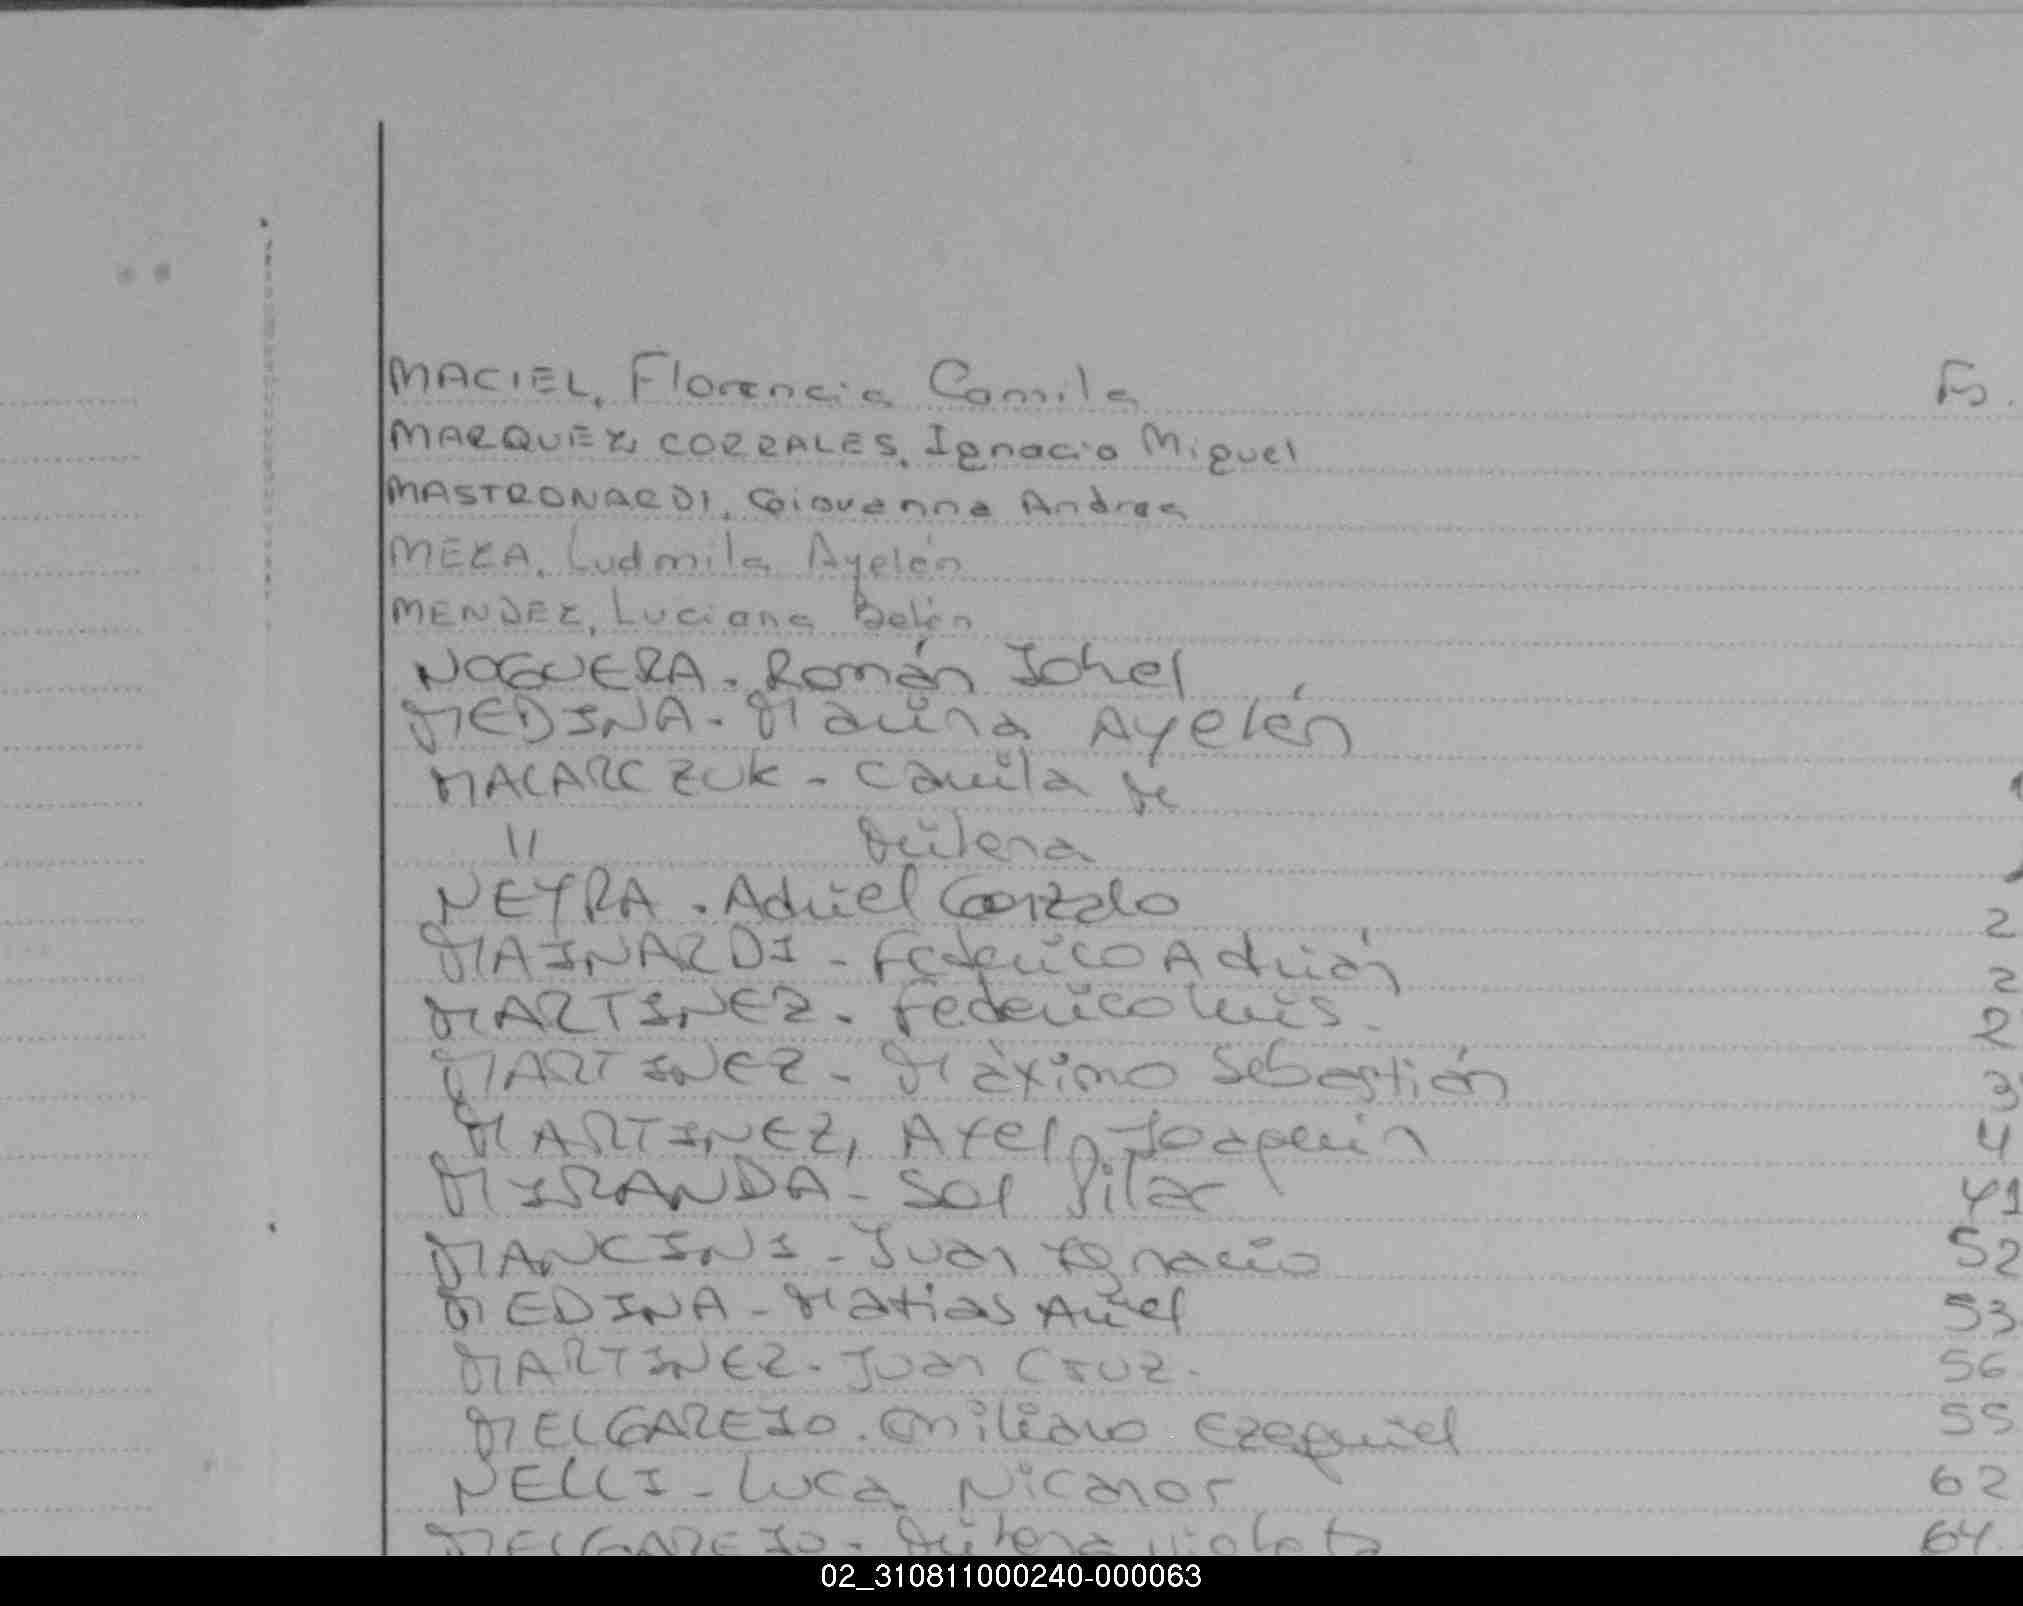 MACIEL, Florencia Camila Fs.
MARQUEZ, CORRALES, Ignacio Miguel
MASTRONARDI, Giovanna Andrea
MEZA, Ludmila Ayelén
MENDEZ, Luciana Belén
NOGUERA - Román Johel
MEDINA - Marina Ayelén
MACARCZUK - Camila M
" Milena
NEYRA - Adriel Gonzalo 2
MAINARDI - Federico Adrián 2
MARTINEZ - Federico Luis. 2
MARTINEZ - Máximo Sebastián 3
MARTINEZ, Axel Joaquin 4
MIRANDA - Sol Pilar 41
MANCINI - Juan Ignacio 52
MEDINA - Matias Ariel 53
MARTINEZ - Juan Cruz. 56
MELGAREJO. Emiliano Ezequiel 55
NELLI - Luca Nicanor 62
MELGAREJO - Milena Violeta 64.
02_310811000240-000063